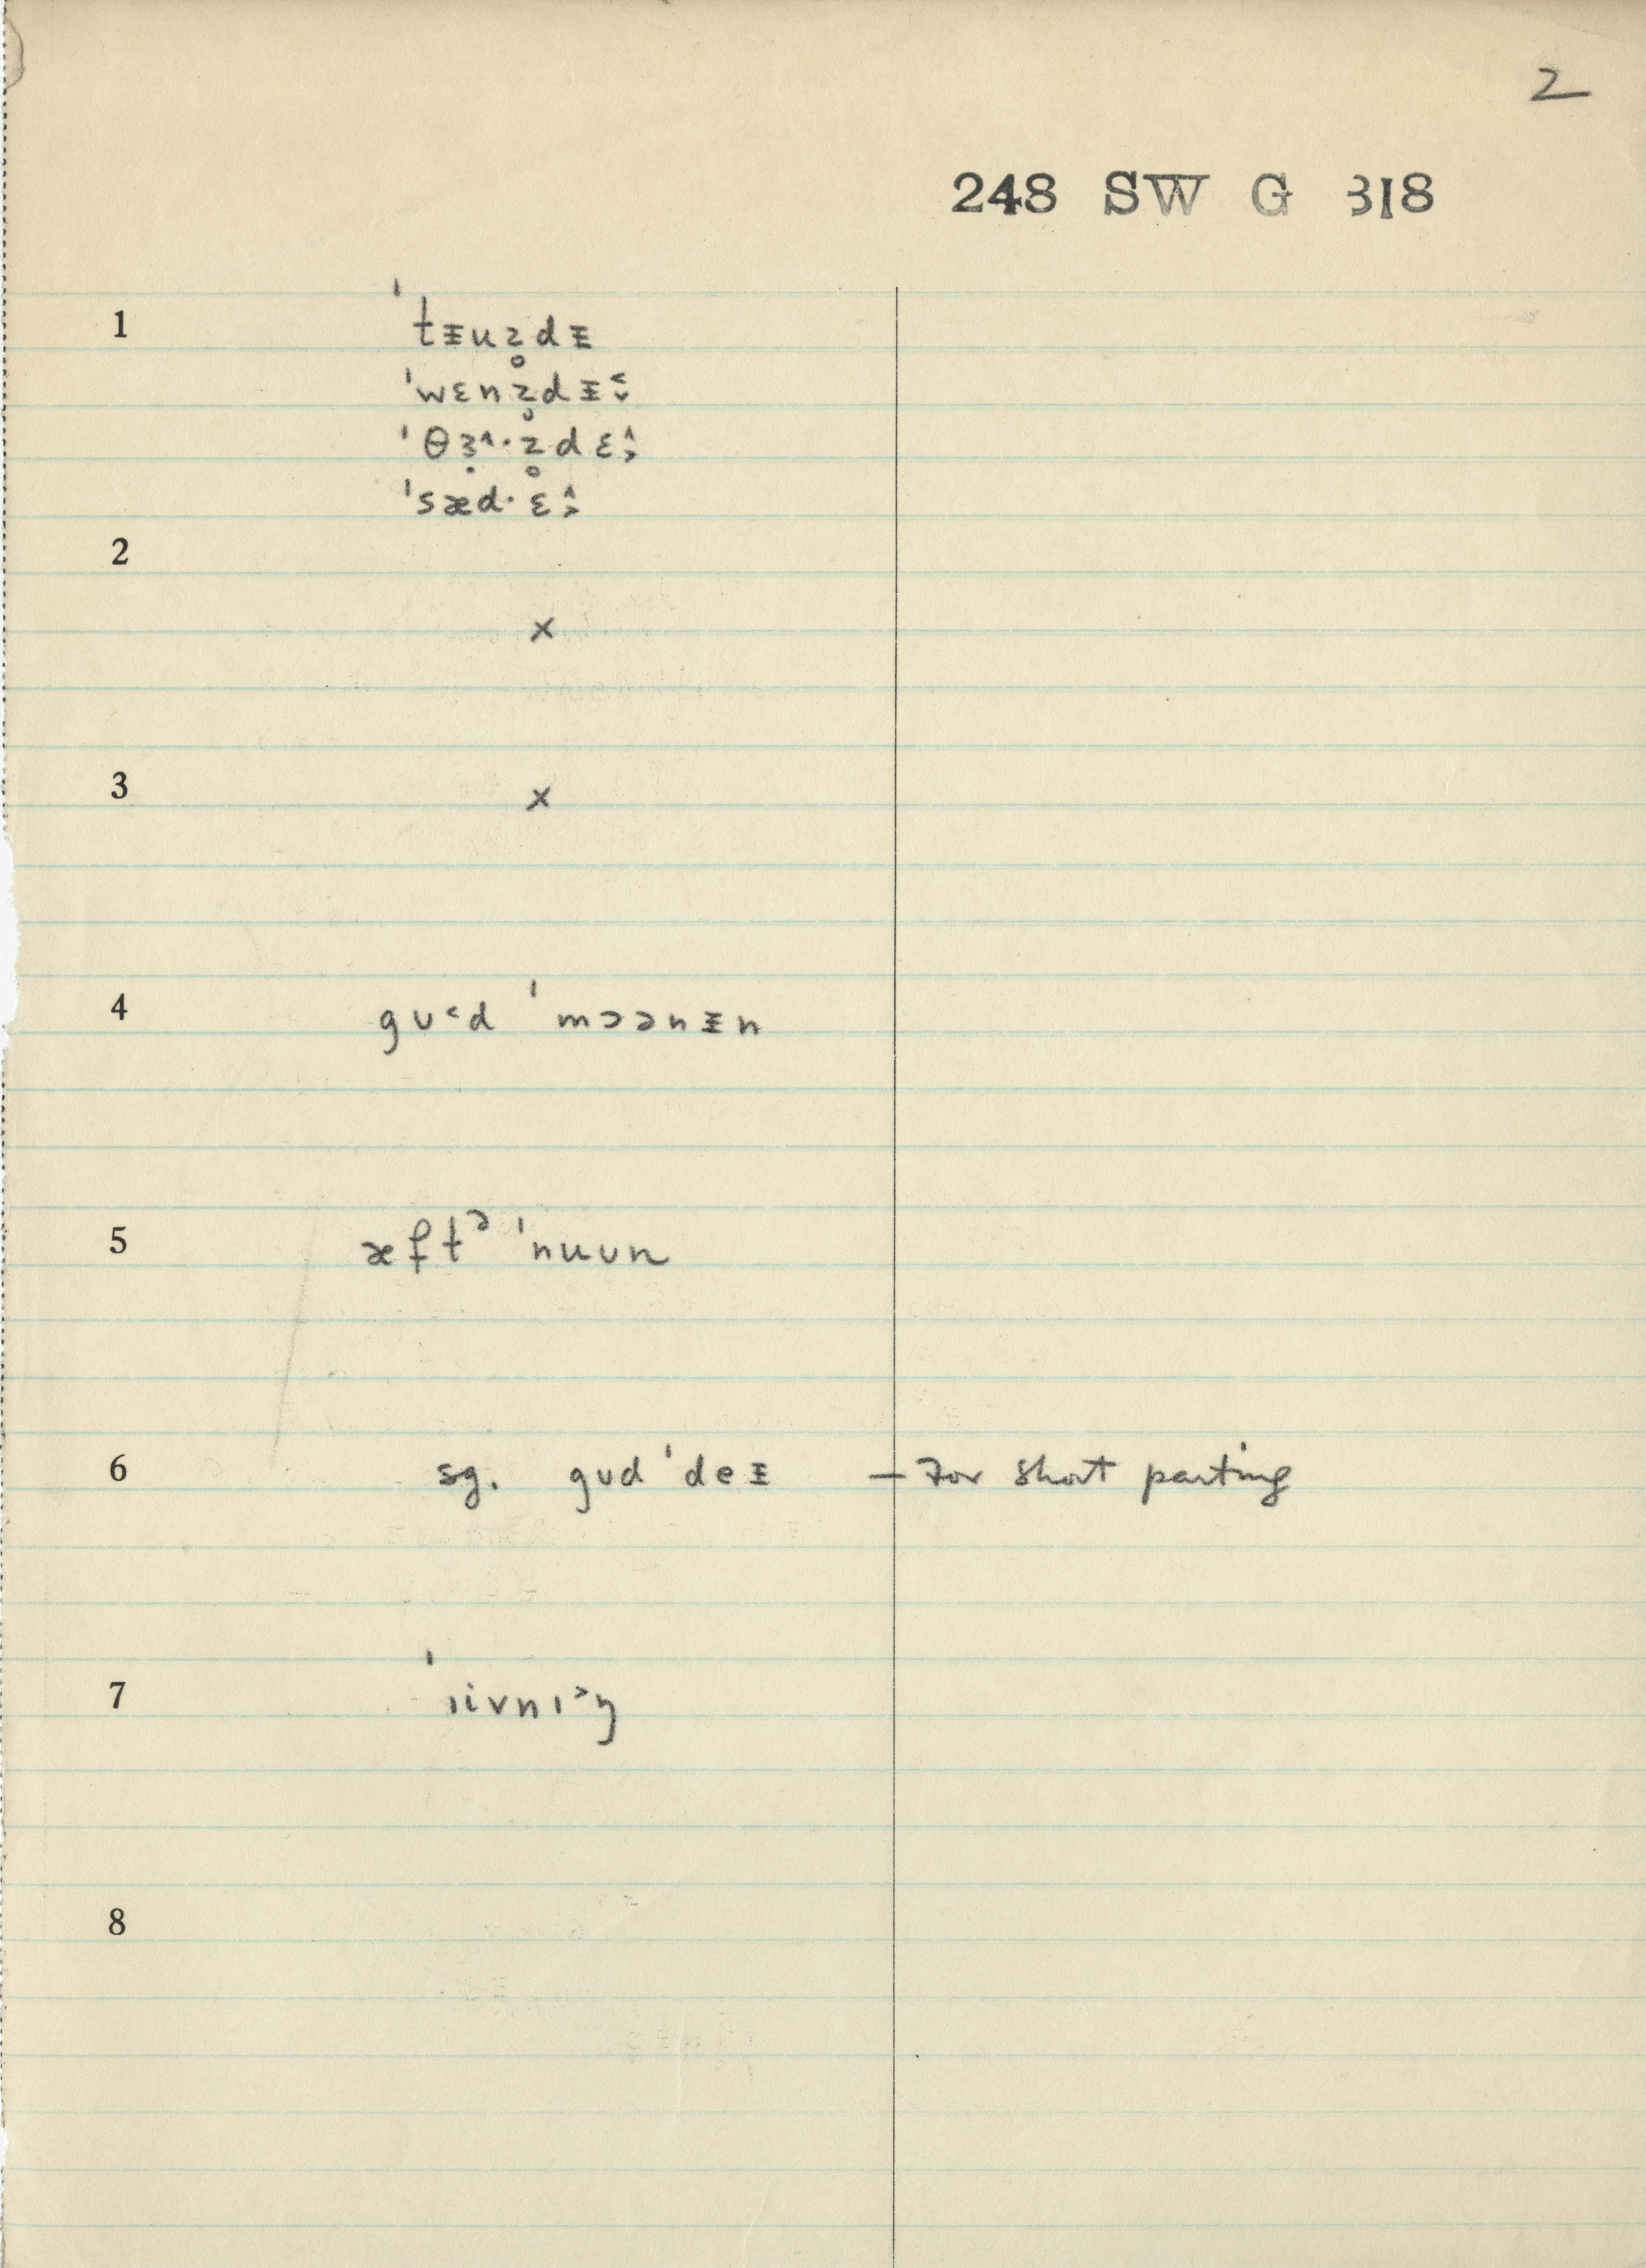 2
248 SW G 318
1 ˈtᵻuz̥dᵻ
ˈwɛnz̥dᵻ˂˅
ˈθɜ̣˄·z̥dɛ˄˃
ˈsæd·ɛ˄˃
2
×
3
×
4 gʊ˂d ˈmɔənᵻn
5 æftᵊ ˈnuʊn
6 sg. gʊd ˈdeᵻ — For short parting
7 ˈɪivnɪ˃ŋ
8